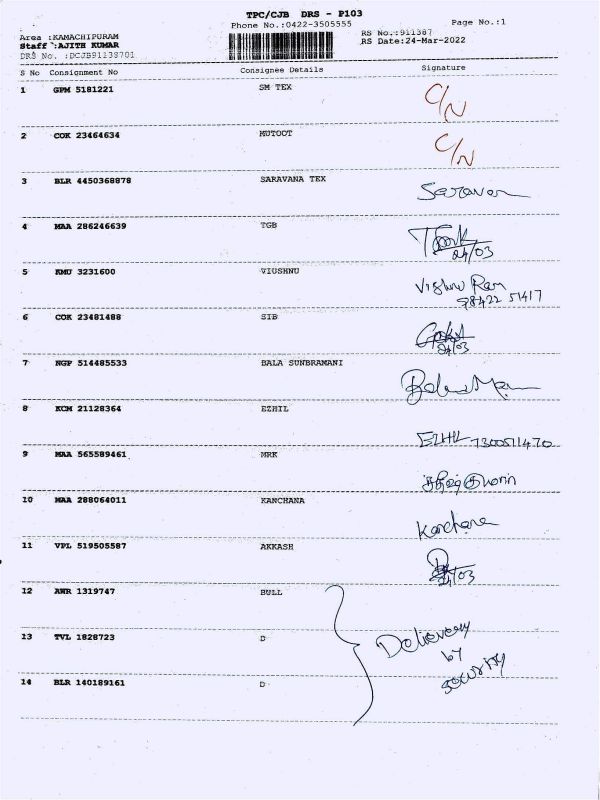 TPC/CJB DRS - P103
Phone No.:0422-3505555
Page No.:1
Area :KAMACHIPURAM
RS No.:911387
Staff :AJITH KUMAR
RS Date:24-Mar-2022
DRS No. :DCJB91138701
S No Consignment No Consignee Details Signature
1 GPM 5181221 SM TEX C/N
2 COK 23464634 MUTOOT C/N
3 BLR 4450368878 SARAVANA TEX Saravan
4 MAA 286246639 TGB
24/03
5 KMU 3231600 VIUSHNU Vishnu Ram
98422 51417
6 COK 23481488 SIB
24/03
7 NGP 514485533 BALA SUNBRAMANI
8 KCM 21128364 EZHIL EZHIL 7300511470
9 MAA 565589461 MRK
10 MAA 288064011 KANCHANA Kanchana
11 VPL 519505587 AKKASH
24/03
12 AWR 1319747 BULL
13 TVL 1828723 D
14 BLR 140189161 D
Delievery
by
security